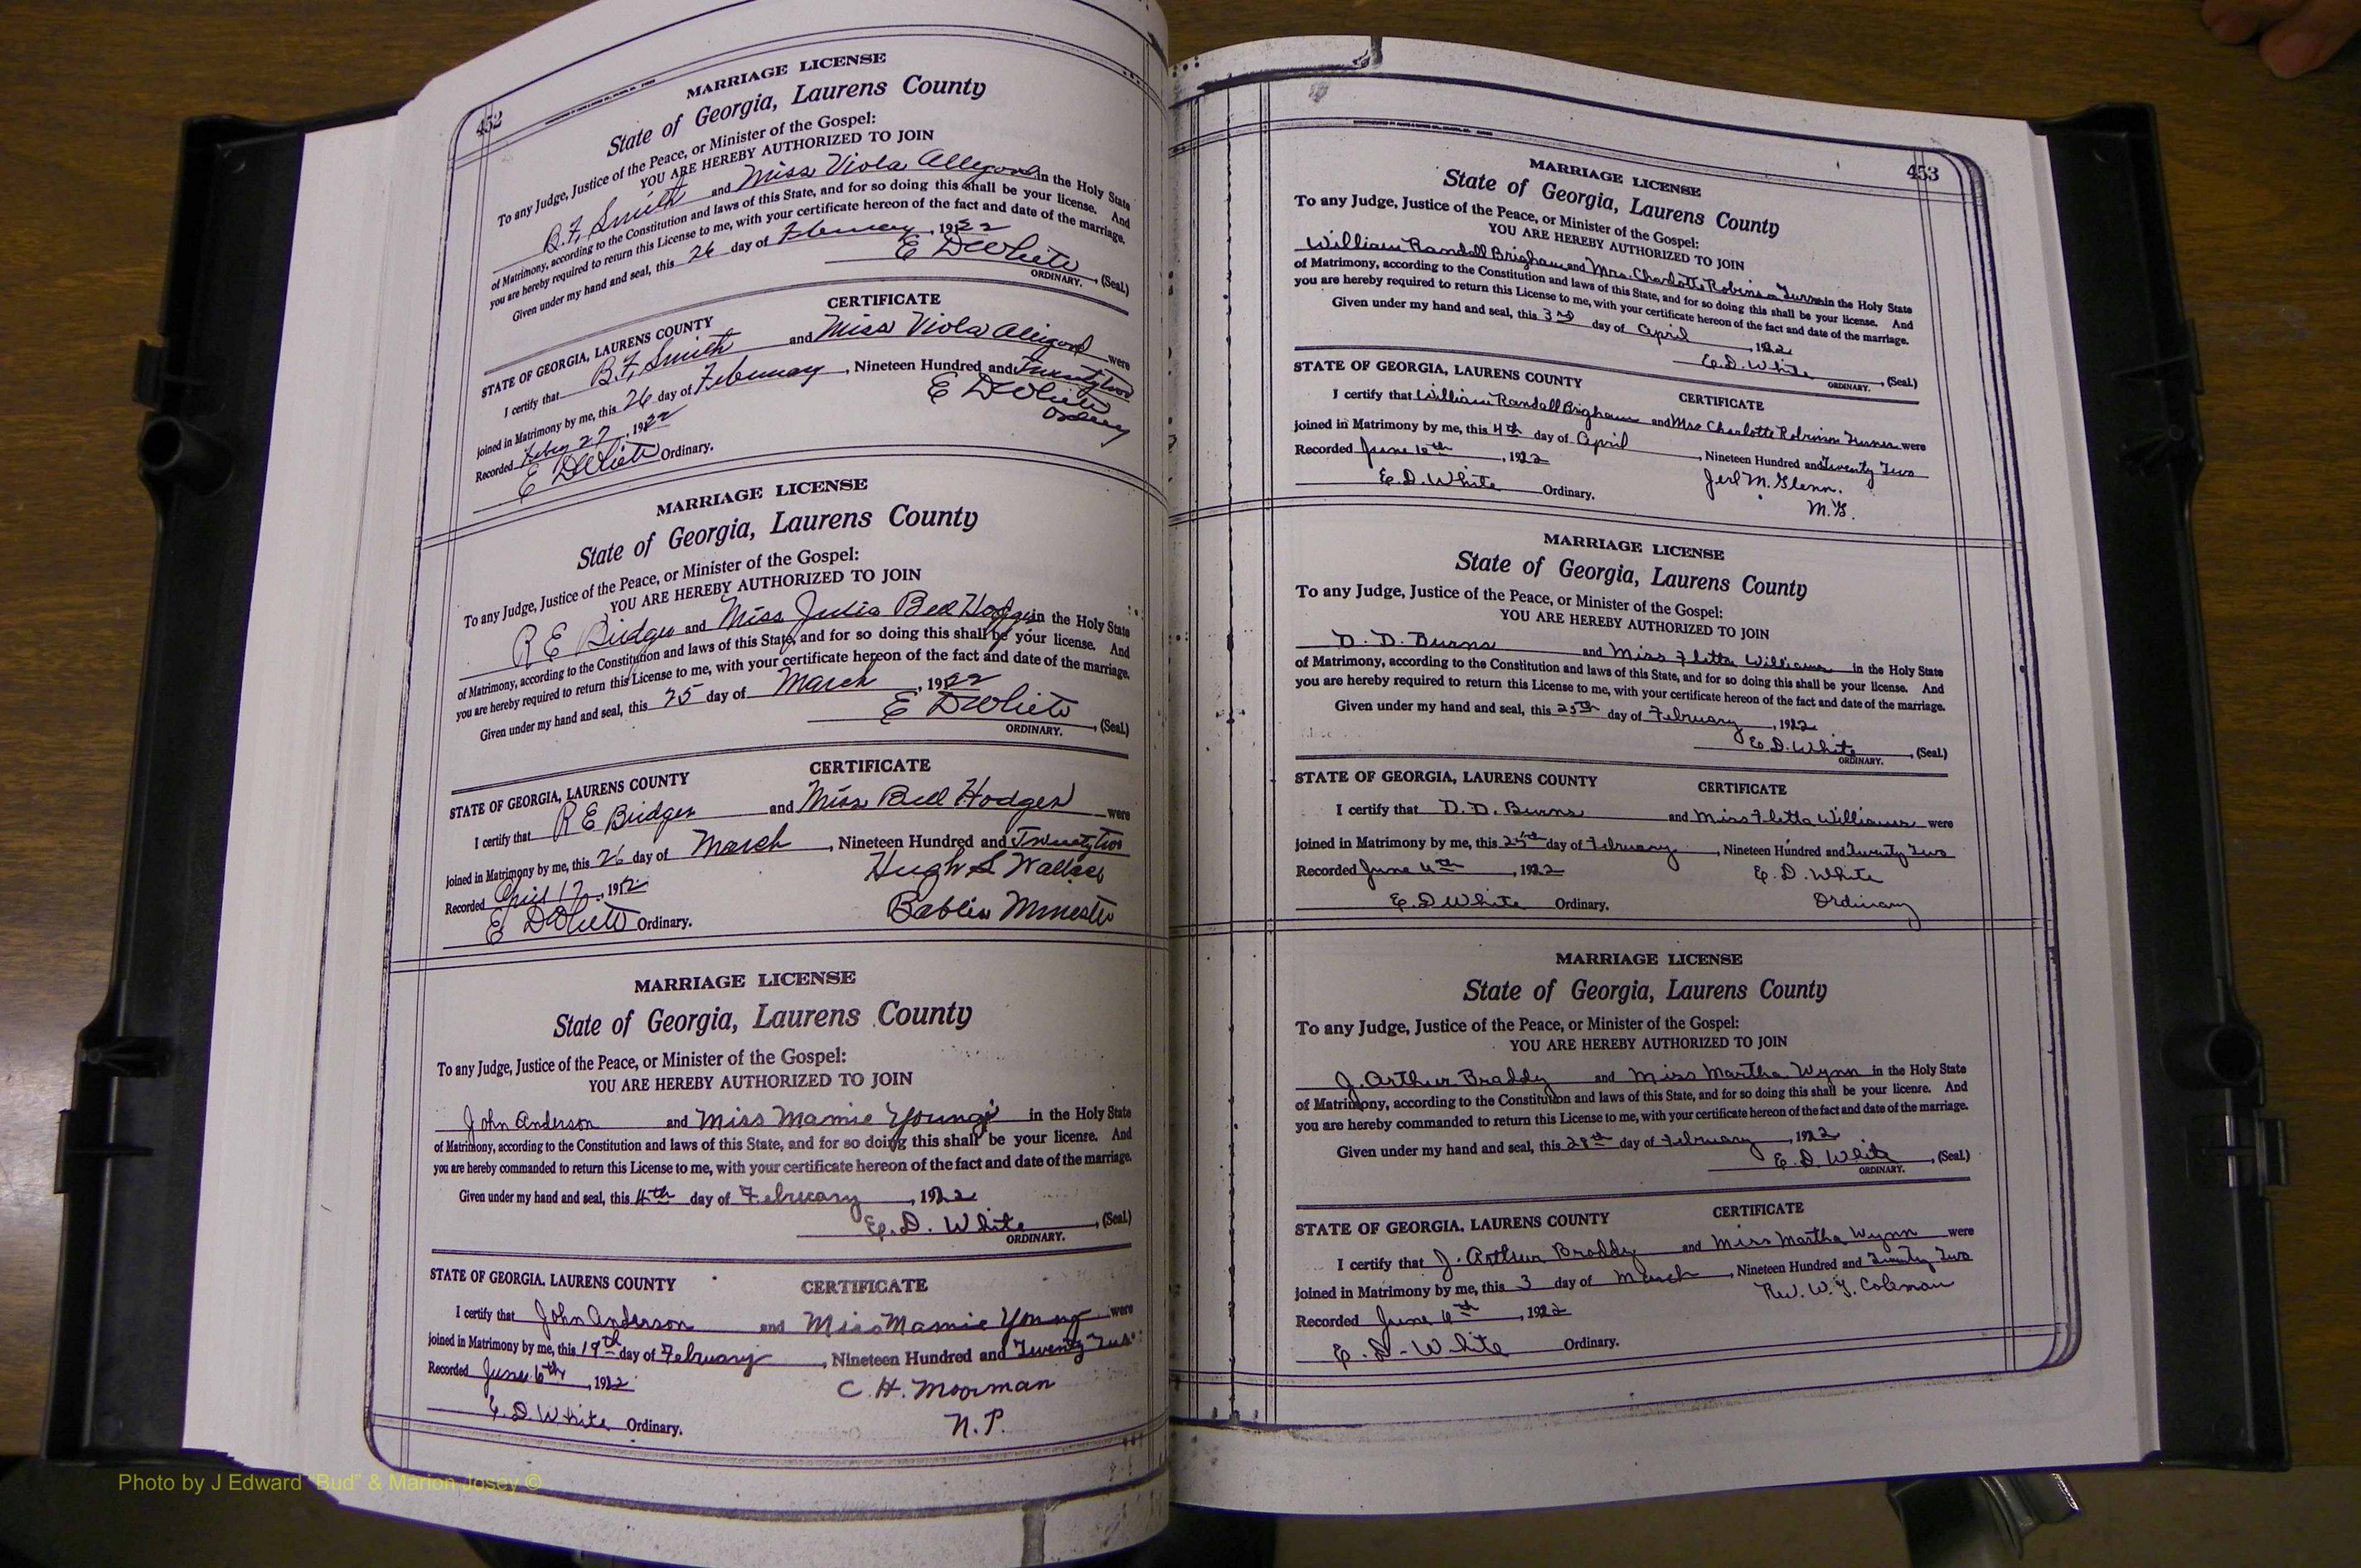 452
MARRIAGE LICENSE
State of Georgia, Laurens County
To any Judge, Justice of the Peace, or Minister of the Gospel:
YOU ARE HEREBY AUTHORIZED TO JOIN
B.F. Smith and Miss Viola Alligood in the Holy State
of Matrimony, according to the Constitution and laws of this State, and for so doing this shall be your license. And
you are hereby required to return this License to me, with your certificate hereon of the fact and date of the marriage.
Given under my hand and seal, this 26 day of February, 1922
E D White, (Seal.)
ORDINARY.
CERTIFICATE
STATE OF GEORGIA, LAURENS COUNTY
I certify that B.F. Smith and Miss Viola Alligood were
joined in Matrimony by me, this 26 day of February, Nineteen Hundred and Twenty two
Recorded Feby 27, 1922 E D White
E D White Ordinary.
MARRIAGE LICENSE
State of Georgia, Laurens County
To any Judge, Justice of the Peace, or Minister of the Gospel:
YOU ARE HEREBY AUTHORIZED TO JOIN
R E Bridges and Miss Julia Bell Hodges in the Holy State
of Matrimony, according to the Constitution and laws of this State, and for so doing this shall be your license. And
you are hereby required to return this License to me, with your certificate hereon of the fact and date of the marriage.
Given under my hand and seal, this 25 day of March, 1922
E D White, (Seal.)
ORDINARY.
CERTIFICATE
STATE OF GEORGIA, LAURENS COUNTY
I certify that R E Bridges and Miss Bell Hodges were
joined in Matrimony by me, this 26 day of March, Nineteen Hundred and Twenty two
Recorded April 17, 1912 Hugh S Wallace
E D White Ordinary.
MARRIAGE LICENSE
State of Georgia, Laurens County
To any Judge, Justice of the Peace, or Minister of the Gospel:
YOU ARE HEREBY AUTHORIZED TO JOIN
John Anderson and Miss Mamie Young in the Holy State
of Matrimony, according to the Constitution and laws of this State, and for so doing this shall be your license. And
you are hereby commanded to return this License to me, with your certificate hereon of the fact and date of the marriage.
Given under my hand and seal, this 4th day of February, 1922
E. D. White, (Seal.)
ORDINARY.
STATE OF GEORGIA. LAURENS COUNTY CERTIFICATE
I certify that John Anderson and Miss Mamie Young were
joined in Matrimony by me, this 19th day of February, Nineteen Hundred and Twenty Two
Recorded June 6th, 1922 C. H. Moorman
E. D. White Ordinary. N.P.
453
MARRIAGE LICENSE
State of Georgia, Laurens County
To any Judge, Justice of the Peace, or Minister of the Gospel:
YOU ARE HEREBY AUTHORIZED TO JOIN
William Randall Brigham and Mrs. Charlotte Robinson Turner in the Holy State
of Matrimony, according to the Constitution and laws of this State, and for so doing this shall be your license. And
you are hereby required to return this License to me, with your certificate hereon of the fact and date of the marriage.
Given under my hand and seal, this 3rd day of April, 1922
E. D. White, (Seal.)
ORDINARY.
STATE OF GEORGIA, LAURENS COUNTY CERTIFICATE
I certify that William Randall Brigham and Mrs Charlotte Robinson Turner were
joined in Matrimony by me, this 4th day of April, Nineteen Hundred and Twenty Two
Recorded June 6th, 1922
E. D. White Ordinary. M.G.
MARRIAGE LICENSE
State of Georgia, Laurens County
To any Judge, Justice of the Peace, or Minister of the Gospel:
YOU ARE HEREBY AUTHORIZED TO JOIN
D. D. Burns and Miss Fletta Williams in the Holy State
of Matrimony, according to the Constitution and laws of this State, and for so doing this shall be your license. And
you are hereby required to return this License to me, with your certificate hereon of the fact and date of the marriage.
Given under my hand and seal, this 25th day of February, 1922
E. D. White, (Seal.)
ORDINARY.
STATE OF GEORGIA, LAURENS COUNTY CERTIFICATE
I certify that D. D. Burns and Miss Fletta Williams were
joined in Matrimony by me, this 25th day of February, Nineteen Hundred and Twenty Two
Recorded June 6th, 1922 E. D. White
E. D White Ordinary. Ordinary
MARRIAGE LICENSE
State of Georgia, Laurens County
To any Judge, Justice of the Peace, or Minister of the Gospel:
YOU ARE HEREBY AUTHORIZED TO JOIN
J. Arthur Braddy and Miss Martha Wynn in the Holy State
of Matrimony, according to the Constitution and laws of this State, and for so doing this shall be your license. And
you are hereby commanded to return this License to me, with your certificate hereon of the fact and date of the marriage.
Given under my hand and seal, this 28th day of February, 1922
E. D. White, (Seal.)
ORDINARY.
STATE OF GEORGIA. LAURENS COUNTY CERTIFICATE
I certify that J. Arthur Braddy and Miss Martha Wynn were
joined in Matrimony by me, this 3 day of March, Nineteen Hundred and Twenty Two
Recorded June 6th, 1922 Rev. W. J. Coleman
E. D. White Ordinary.
Photo by J Edward "Bud" & Marion Josey ©